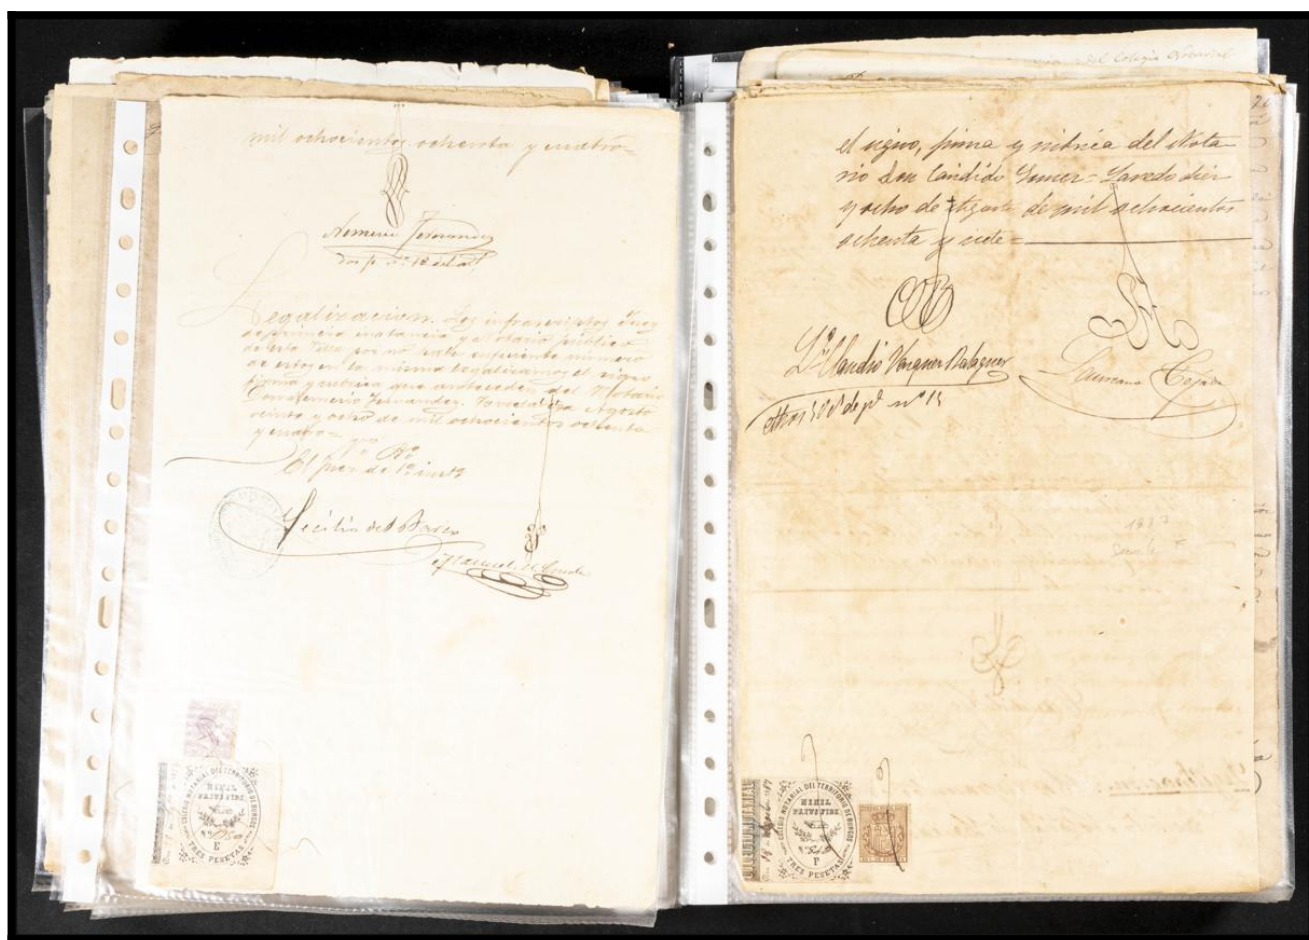 mil ochocientos ochenta y cuatro=
Nemesio Fernandez
Legalizacion. Los infrascriptos Juez
de primera instancia y Notario público
de esta Villa por no haber suficiente número
de estos en la misma legalizamos el signo
firma y rubrica que anteceden del Notario
Don Nemesio Fernandez. Agosto
veinte y ocho de mil ochocientos ochenta
y cuatro=
El Juez de 1ª inst.ª
Cecilio del
Manuel
COLEGIO NOTARIAL DEL TERRITORIO DE BURGOS
NIHIL
PRIUS FIDE
Nº
E
TRES PESETAS
Colegio Notarial
el signo, firma y rubrica del Nota-
rio Don Candido Gomez= Laredo diez
y ocho de Agosto de mil ochocientos
ochenta y siete=
Ldo Claudio Vazquez Balaguer
nº 15
1887
COLEGIO NOTARIAL DEL TERRITORIO DE BURGOS
NIHIL
PRIUS FIDE
Nº
F
TRES PESETAS